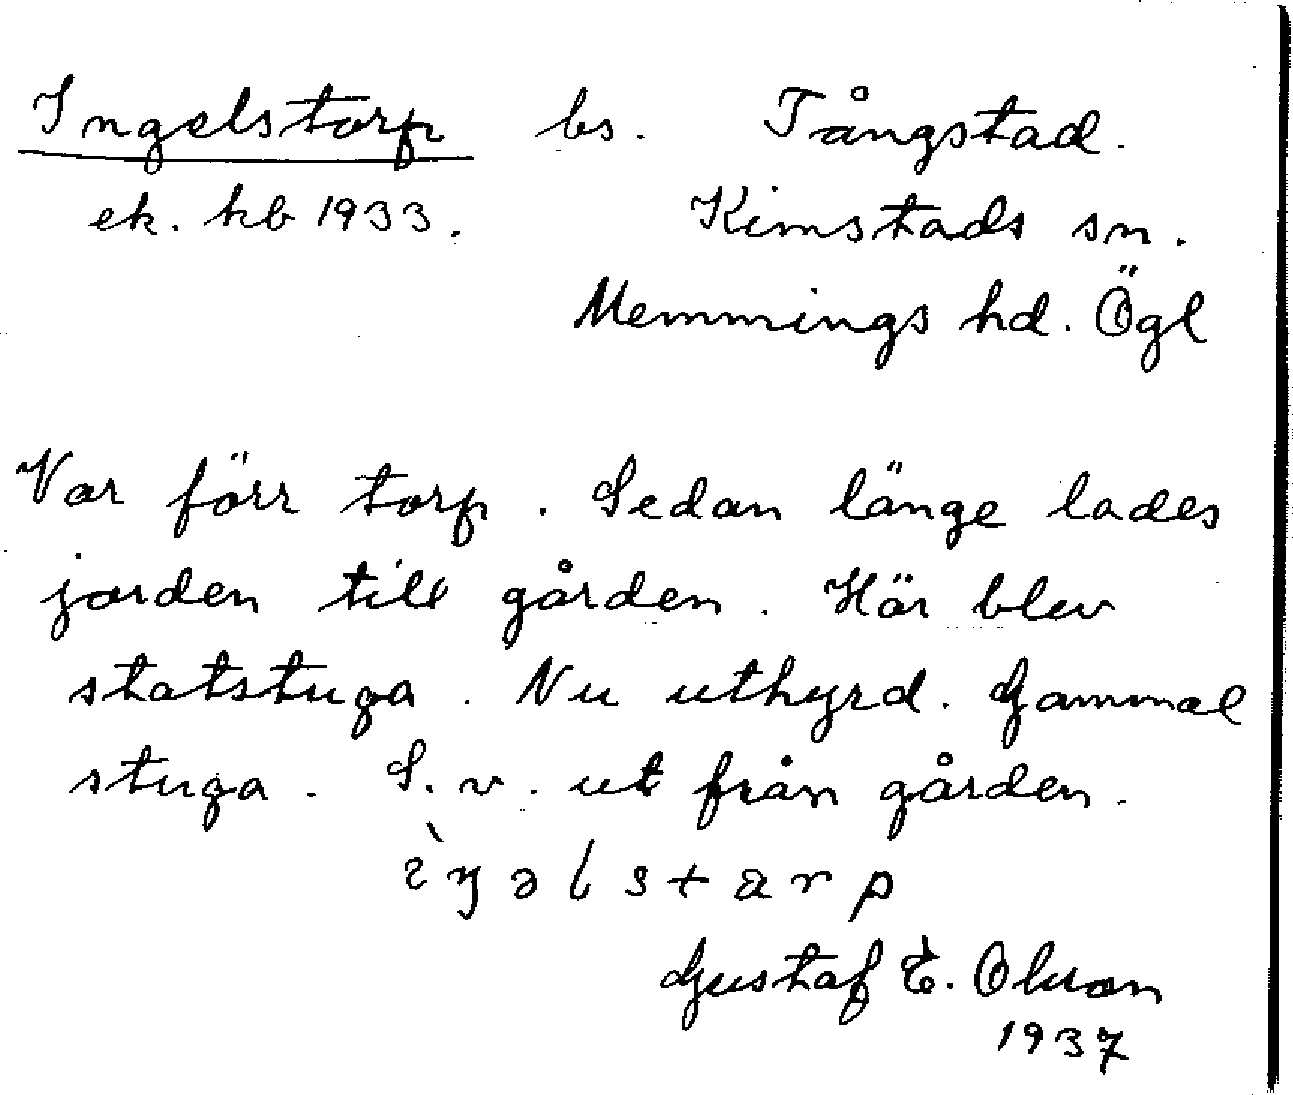 Ingelstorp bs. Tångstad.
ek. kb 1933. Kimstads sn.
Memmings hd. Ögl
Var förr torp. Sedan länge lades
jorden till gården. Här blev
statstuga. Nu uthyrd. Gammal
stuga. S.v. ut från gården.
Gustaf E. Olsson
1937